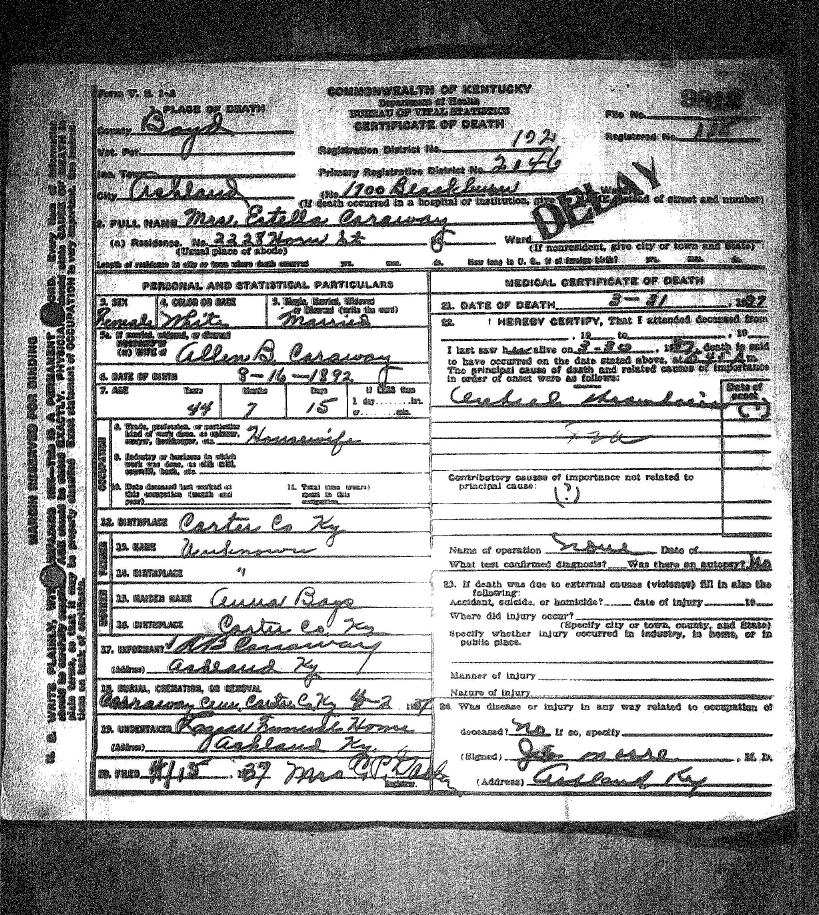 Form V. S. 1-A
COMMONWEALTH OF KENTUCKY
Department of Health
BUREAU OF VITAL STATISTICS
CERTIFICATE OF DEATH
File No.
Registered No. 118
1. PLACE OF DEATH
County Boyd
Vot. Pct.
Inc. Town
City Ashland
Registration District No. 102
Primary Registration District No. 2046
(No. 1700 Blackburn
(If death occurred in a hospital or institution, give its NAME instead of street and number)
DELAY
2. FULL NAME Mrs. Estella Caraway
(a) Residence. No. 2228 Horn St Ward
(Usual place of abode) (If nonresident, give city or town and State)
Length of residence in city or town where death occurred yrs. mos. ds. How long in U. S. if of foreign birth? yrs. mos. ds.
PERSONAL AND STATISTICAL PARTICULARS
3. SEX Female
4. COLOR OR RACE White
5. Single, Married, Widowed or Divorced (write the word) Married
5a. If married, widowed, or divorced
HUSBAND of
(or) WIFE of Allen B. Caraway
6. DATE OF BIRTH 8-16-1892
7. AGE Years 44 Months 7 Days 15 If LESS than 1 day hrs. or min.
OCCUPATION
8. Trade, profession, or particular kind of work done, as spinner, sawyer, bookkeeper, etc. Housewife
9. Industry or business in which work was done, as silk mill, sawmill, bank, etc.
10. Date deceased last worked at this occupation (month and year)
11. Total time (years) spent in this occupation
12. BIRTHPLACE Carter Co Ky
FATHER
13. NAME Unknown
14. BIRTHPLACE "
MOTHER
15. MAIDEN NAME Anna Bays
16. BIRTHPLACE Carter Co. Ky
17. INFORMANT A B Caraway
(Address) Ashland Ky
18. BURIAL, CREMATION, OR REMOVAL
Caraway Cem. Carter Co Ky 4-2 1937
19. UNDERTAKER Funeral Home
(Address) Ashland Ky.
20. FILED 4/15 37 Mrs.
Registrar
MEDICAL CERTIFICATE OF DEATH
21. DATE OF DEATH 3-31, 1937
22. I HEREBY CERTIFY, That I attended deceased from
, 19 to , 19
I last saw her alive on 3-30, 1937, death is said
to have occurred on the date stated above, at m.
The principal cause of death and related causes of importance
in order of onset were as follows:
Date of onset
Cerebral thrombosis
Contributory causes of importance not related to
principal cause:
(?)
Name of operation none Date of
What test confirmed diagnosis? Was there an autopsy? No
23. If death was due to external causes (violence) fill in also the
following:
Accident, suicide, or homicide? date of injury 19
Where did injury occur?
(Specify city or town, county, and State)
Specify whether injury occurred in industry, in home, or in
public place.
Manner of injury
Nature of injury
24. Was disease or injury in any way related to occupation of
deceased? No If so, specify
(Signed) M. D.
(Address) Ashland Ky
MARGIN RESERVED FOR BINDING